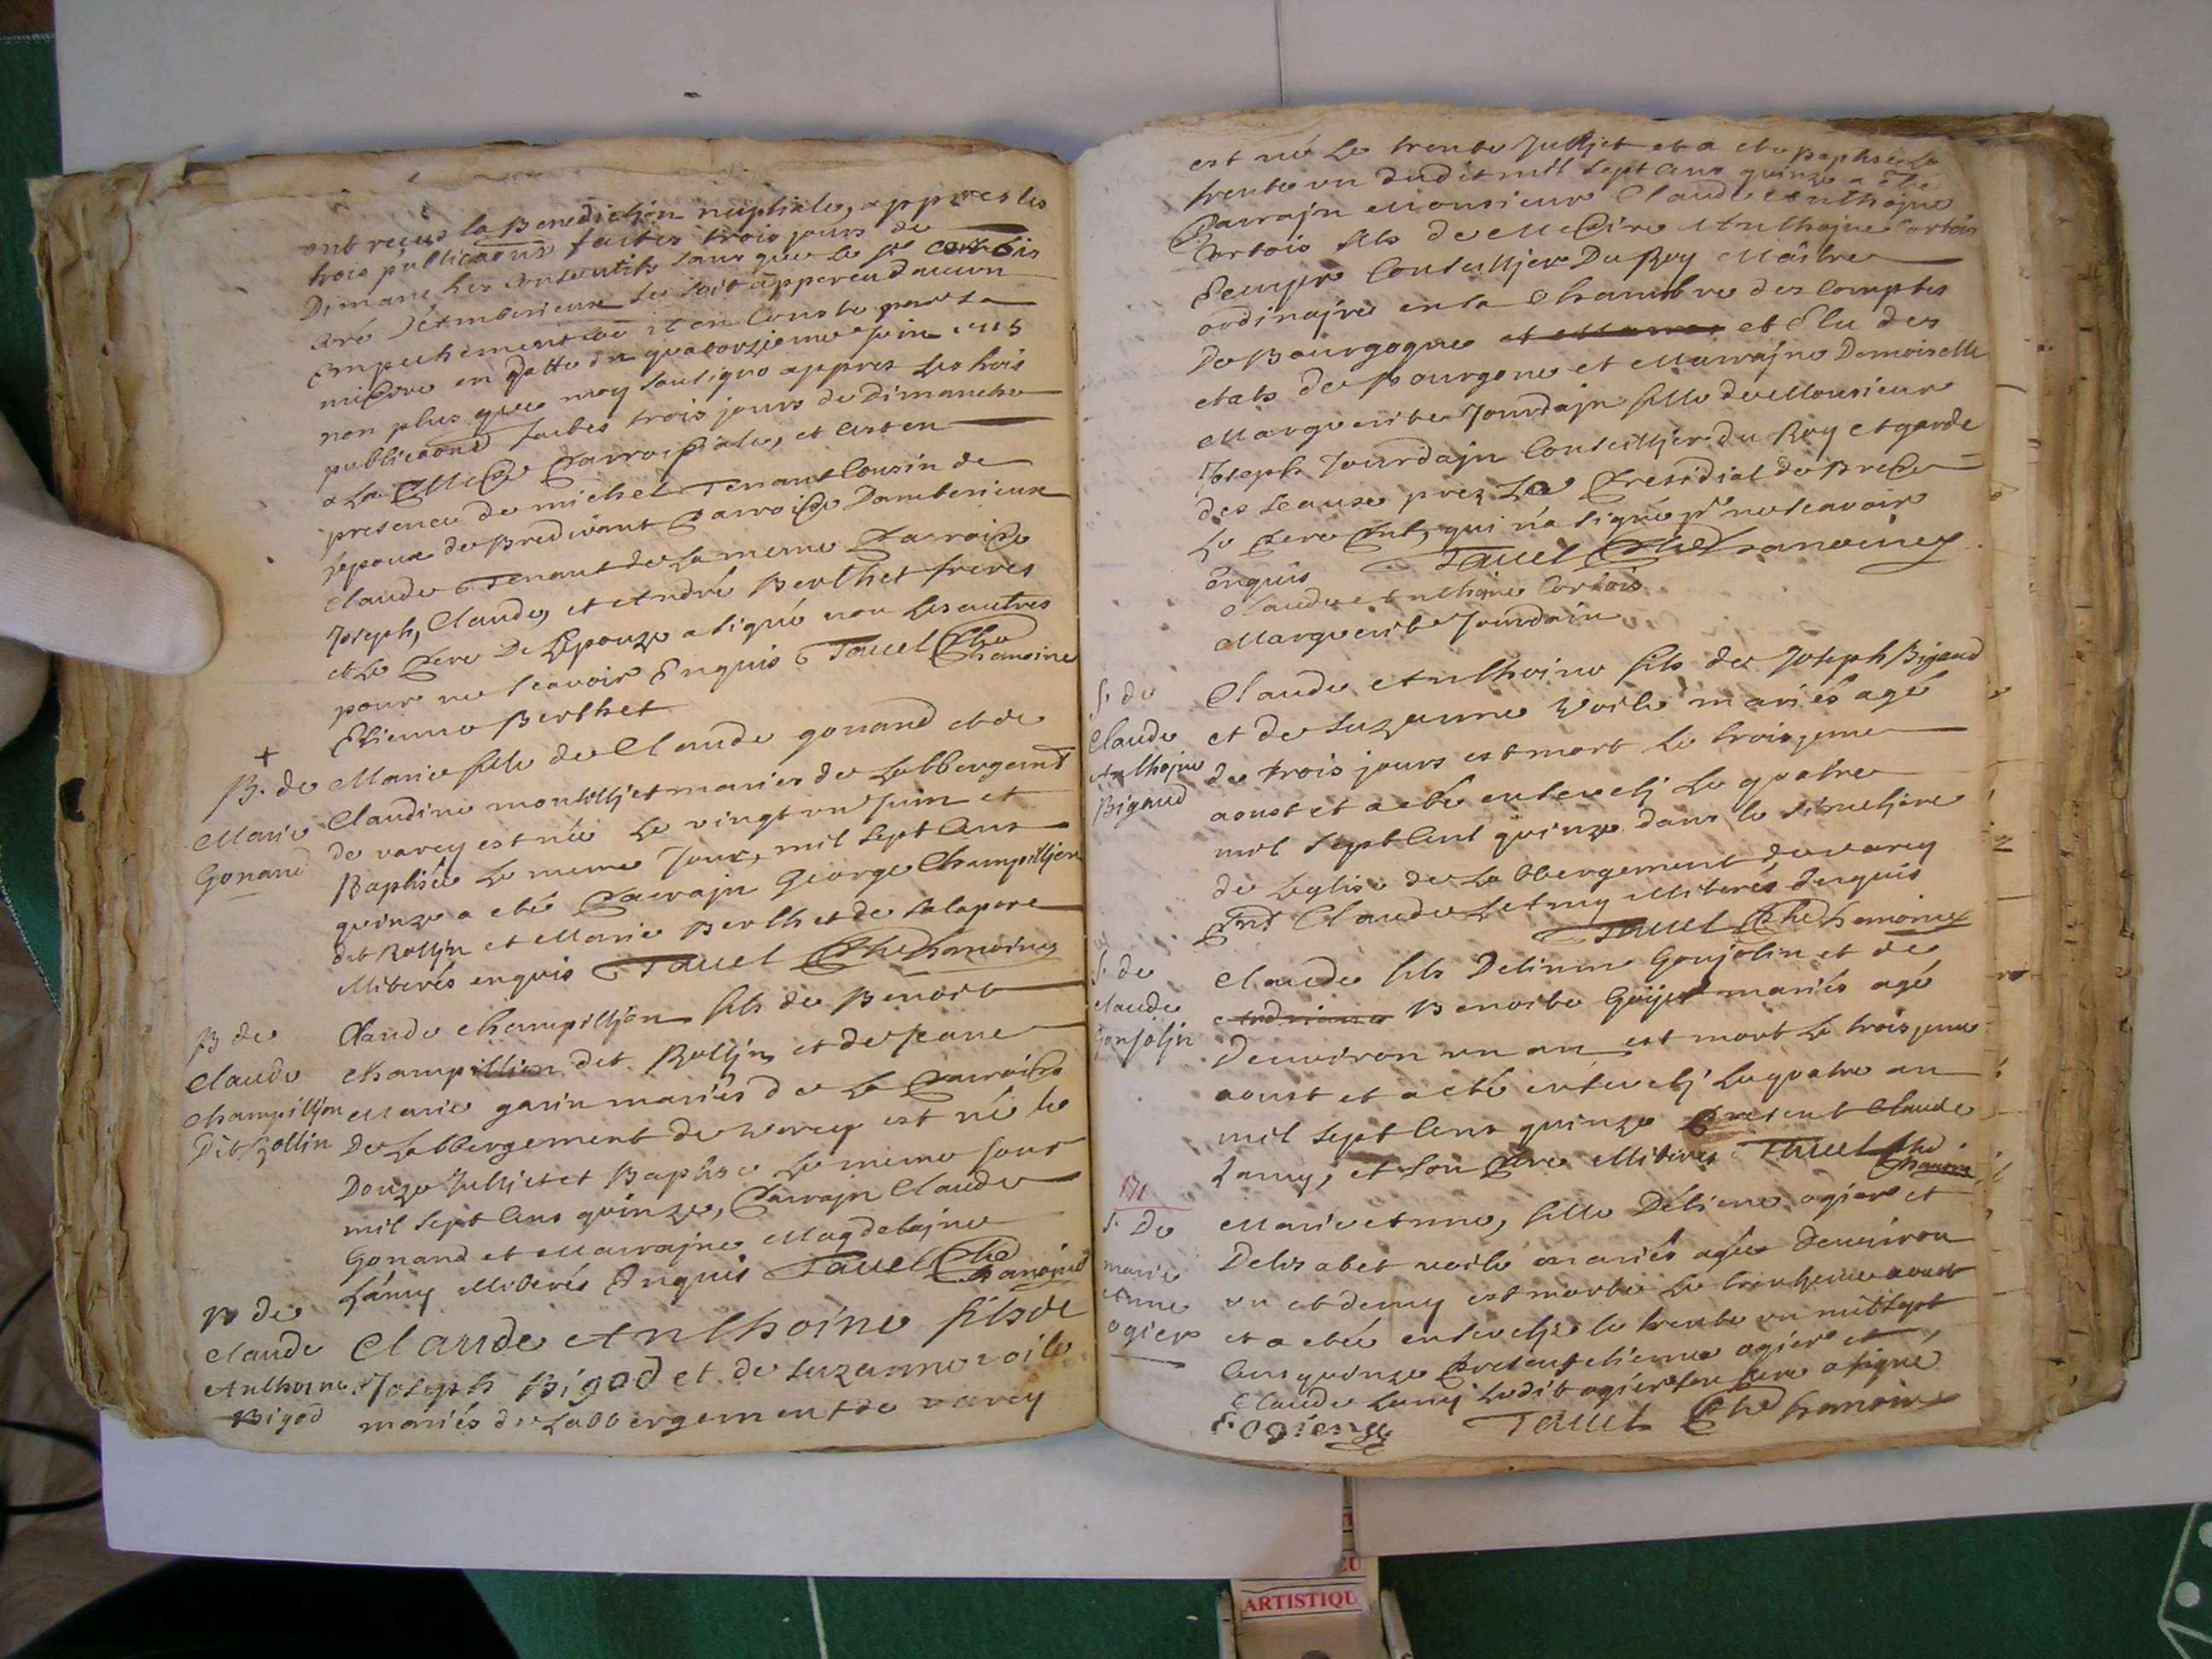 ont reçus la Benediction nuptiale, appres les
trois publicaons faites trois jours de
Dimanches consecutifs sans que le Sr
curé se soit apperceu d'aucun
Empechement il en conste par sa
missive en datte du quatorzieme Juin 1715
non plus que moy soussigné appres les trois
publicaons faites trois jours de Dimanche
a La Messe Parroissiale, et cest en
presence de michel Tenant Cousin de
Lepoux de Bredevant Parroisse Dambérieux
Claude Tenant de La meme Parroisse
Joseph, Claude, et André Berthet freres
et Le Pere De Lepouze a signé non Les autres
pour ne scavoir Enquis Tavel Pbre
Chanoine
Etienne Berthet
+
B. de
Marie
Gonand
Marie fille de Claude gonand et de
Claudine mariés de Labbergemt
de varey est née Le vingt un Juin et
Baptisée Le meme Jour, mil sept cens
quinze a eté Parrajn George Champilljon
dit Rolljn et Marie Berthet de
illiterés enquis Tavel Pbre Chanoine
B de
Claude
Champilljon
Dit Rollin
Claude champilljon fils de Benoit
champillion dit Rolljn et de Jeane
Marie garin mariés de La Parroisse
De Labbergement de Varey est né le
Douze Julljet et Baptisé Le meme Jour
mil sept cens quinze, Parrajn Claude
Gonand et Marrajne Magdelajne
Lámy illiterés Enquis Tavel Pbre
Chanoine
B de
Claude
Anthoine
Bigod
Claude Anthoine fils de
Joseph Bigod et de Suzanne voile
mariés de Labbergement de varey
est né Le trente Julljet et a eté Baptisé Le
trente un dudit mil sept cens quinze a été
Parrajn Monsieur Claude Anthojne
Cortois fils de Messire Anthojne Cortois
Conseilljer Du Roy Maître
ordinajre en sa Chambre des Comptes
De Bourgogne et Elu des
etats de Bourgone et Marrajne Demoiselle
Marguerite Jourdajn fille de Monsieur
Joseph Jourdajn Conseilljer du Roy et garde
des sceaux prez Le Presidial de Bresse
Le Pere Pnt, qui n'a signé pr ne scavoir
Enquis Tavel Pbre Chanoine
Claude Anthoine Cortois
Marguerite Jourdain
S. de
Claude
Anthojne
Bigaud
Claude Anthoine fils de Joseph Bigaud
et de Suzanne Voile mariés agé
de trois jours est mort Le troisjeme
aoust et a eté ensevelj Le quatre
mil sept cent quinze dans le Cimetjere
de Leglise de Labbergement de varey
Pnt Claude Lamy illiterés Enquis
Tavel Pbre Chanoine
S. de
Claude
Gonjoljn
Claude fils Detienne Gonjolin et de
Benoite Guijet mariés agé
Denviron un an est mort Le troisjeme
aoust et a eté ensevelj Le quatre an
mil sept cens quinze Present Claude
Lamy, et son Pere illiterés Tavel Pbre
Chanoine
171
S. De
marie
Anne
ogier
Marie Anne, fille Détiene ogier et
Delisabet voile mariés agée Denviron
un et demy est morte Le trentjeme aoust
et a etée ensevelje le trente un mil sept
cens quinze Present etienne ogier et
Claude Lamy Ledit ogier son pere a signé
E. Ogier Tavel Pbre Chanoine
ARTISTIQU